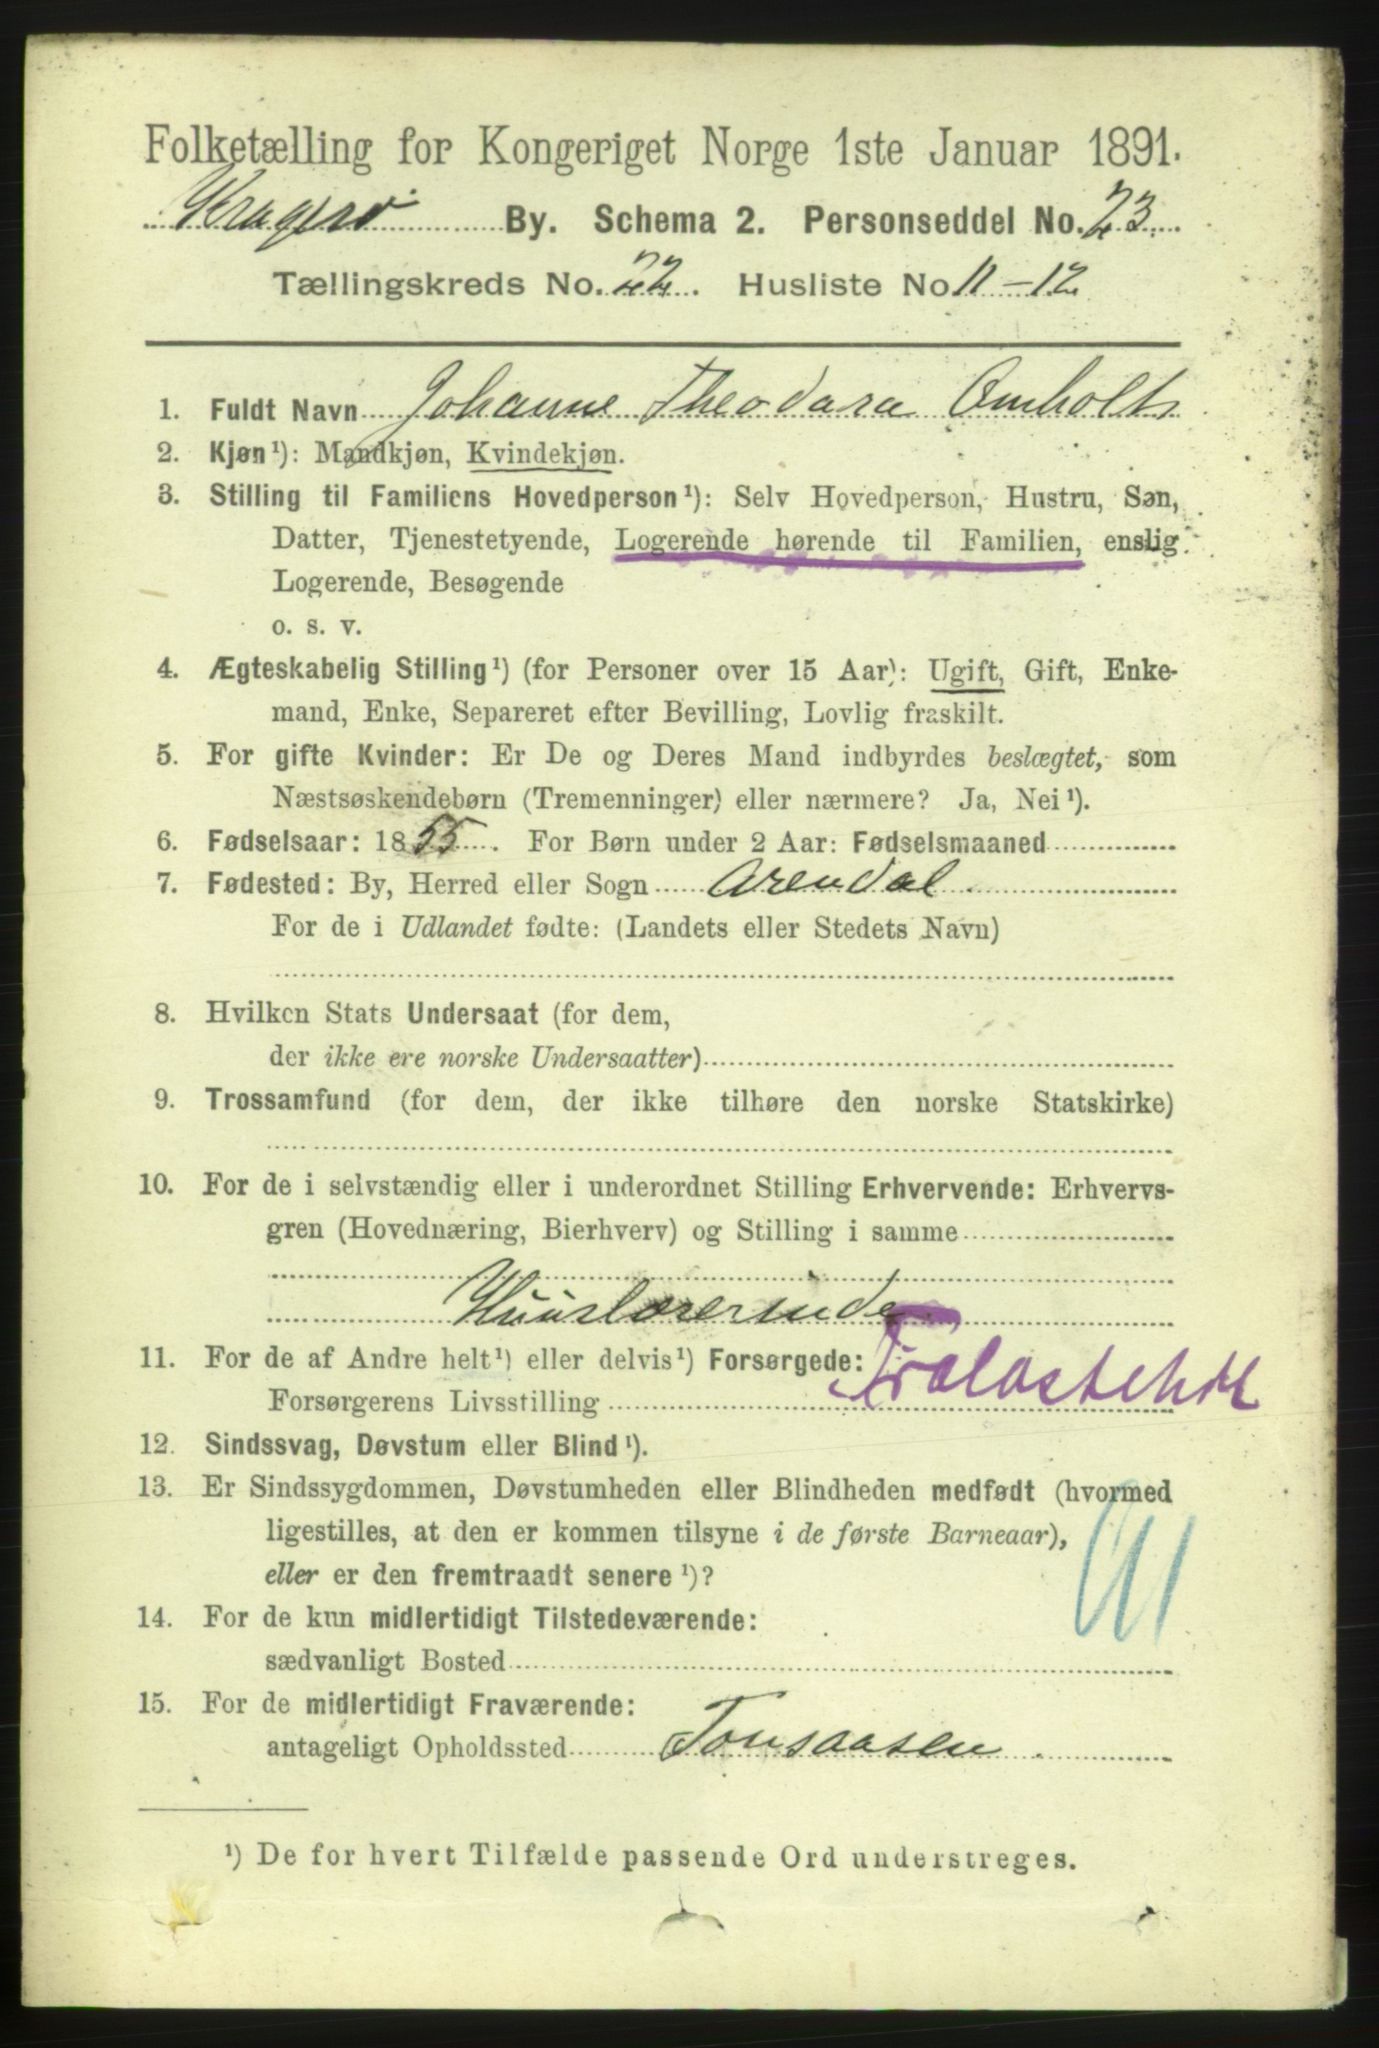 Folketælling for Kongeriget Norge 1ste Januar 1891.
Kragerø By. Schema 2. Personseddel No. 23.
Tællingskreds No. 22. Husliste No 11-12
1. Fuldt Navn Johanne Theodora Omholt
2. Kjøn¹): Mandkjøn, Kvindekjøn.
3. Stilling til Familiens Hovedperson¹): Selv Hovedperson, Hustru, Søn,
Datter, Tjenestetyende, Logerende hørende til Familien, enslig
Logerende, Besøgende
o. s. v.
4. Ægteskabelig Stilling¹) (for Personer over 15 Aar): Ugift, Gift, Enke-
mand, Enke, Separeret efter Bevilling, Lovlig fraskilt.
5. For gifte Kvinder: Er De og Deres Mand indbyrdes beslægtet, som
Næstsøskendebørn (Tremenninger) eller nærmere? Ja, Nei¹).
6. Fødselsaar: 1855. For Børn under 2 Aar: Fødselsmaaned
7. Fødested: By, Herred eller Sogn Arendal.
For de i Udlandet fødte: (Landets eller Stedets Navn)
8. Hvilken Stats Undersaat (for dem,
der ikke ere norske Undersaatter)
9. Trossamfund (for dem, der ikke tilhøre den norske Statskirke)
10. For de i selvstændig eller i underordnet Stilling Erhvervende: Erhvervs-
gren (Hovednæring, Bierhverv) og Stilling i samme
Huuslærerinde
11. For de af Andre helt¹) eller delvis¹) Forsørgede:
Forsørgerens Livsstilling
12. Sindssvag, Døvstum eller Blind¹).
13. Er Sindssygdommen, Døvstumheden eller Blindheden medfødt (hvormed
ligestilles, at den er kommen tilsyne i de første Barneaar),
eller er den fremtraadt senere¹)?
14. For de kun midlertidigt Tilstedeværende:
sædvanligt Bosted
15. For de midlertidigt Fraværende:
antageligt Opholdssted Tonsaasen
¹) De for hvert Tilfælde passende Ord understreges.